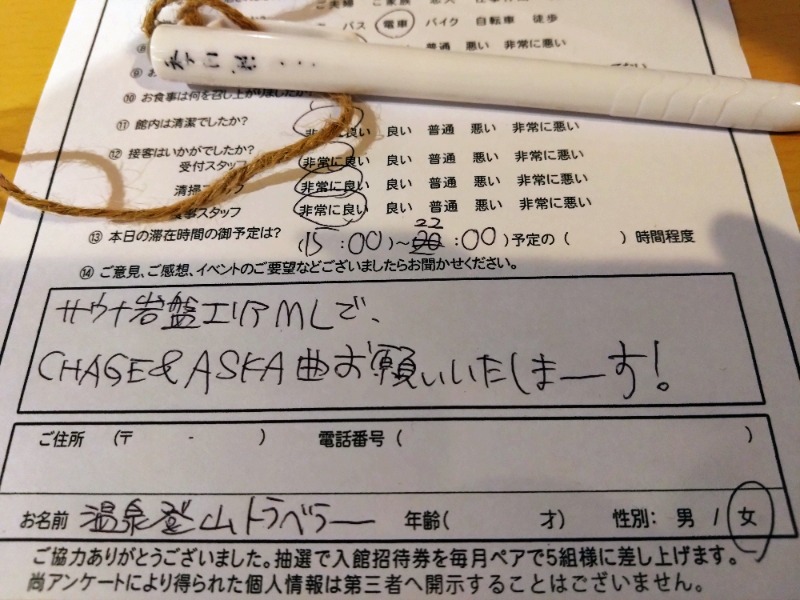 ご夫婦 ご家族
バス 電車 バイク 自転車 徒歩
普通 悪い 非常に悪い
⑨ お
⑩ お食事は何を召し上がりましたか?
⑪ 館内は清潔でしたか? 非常に良い 良い 普通 悪い 非常に悪い
⑫ 接客はいかがでしたか?
受付スタッフ 非常に良い 良い 普通 悪い 非常に悪い
清掃スタッフ 非常に良い 良い 普通 悪い 非常に悪い
食事スタッフ 非常に良い 良い 普通 悪い 非常に悪い
⑬ 本日の滞在時間の御予定は? (15:00)~22:00)予定の( )時間程度
⑭ ご意見、ご感想、イベントのご要望などございましたらお聞かせください。
サウナ岩盤エリアMLで、
CHAGE&ASKA曲お願いいたしまーす!
ご住所 (〒 - ) 電話番号( )
お名前 温泉登山トラベラー 年齢( 才) 性別: 男 / 女
ご協力ありがとうございました。抽選で入館招待券を毎月ペアで5組様に差し上げます。
尚アンケートにより得られた個人情報は第三者へ開示することはございません。